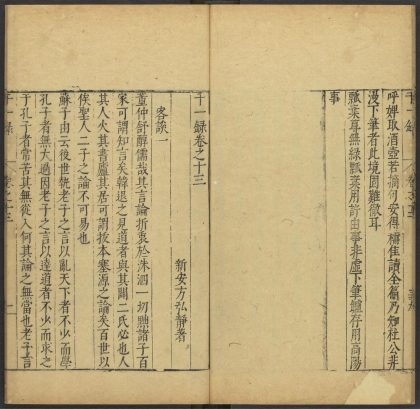 呼婢取酒壺若續何安得稱佳讀全篇乃知杜公非
漫下筆者此境固難徵耳
瓢葉尋無綠瓢葉用許由事非虛下筆壚存用高陽
事
千一錄卷之十三
新安方弘靜著
客談一
董仲舒醇儒哉其言論折衷於洙泗一切黜諸子百
家可謂知言矣韓退之見道者與其闢二氏必也人
其人火其書廬其居可謂拔本塞源之論矣百世以
俟聖人二子之論不可易也
蘇子由云後世執老子之言以亂天下者不少而學
孔子者無大過因老子之言以達道者不少而求之
于孔子者常苦其無從入何其論之無當也老子言
千一錄
卷之十三
一